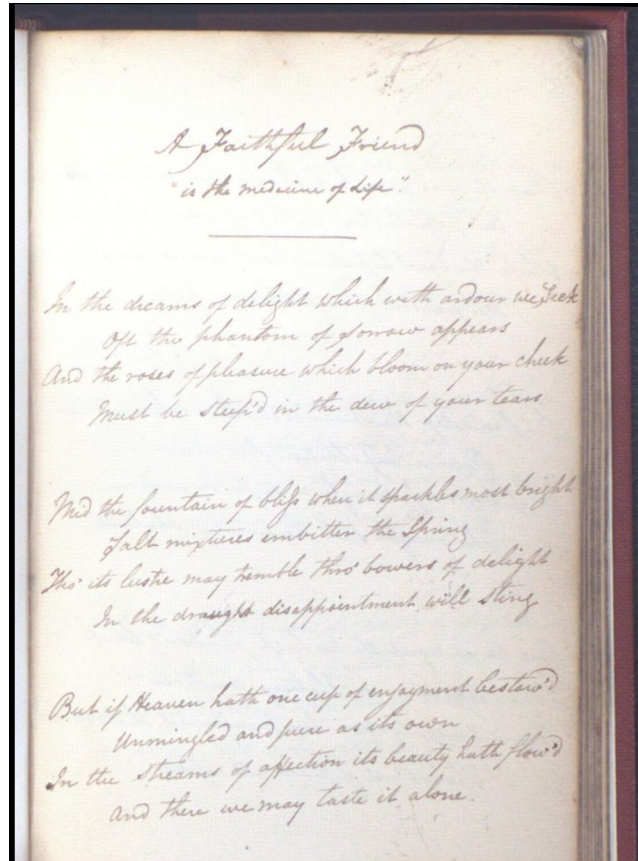 A Faithful Friend
"is the medicine of Life".
In the dreams of delight which with ardour we Seek
Oft the phantom of sorrow appears
And the roses of pleasure which bloom on your cheek
Must be steep'd in the dew of your tears
Mid the fountain of bliss when it sparkles most bright
Salt mixtures embitter the Spring
Tho' its lustre may tremble thro' bowers of delight
In the draught disappointment will sting
But if Heaven hath one cup of enjoyment bestow'd
Unmingled and pure as its own
In the streams of affection its beauty hath flow'd
And there we may taste it alone.